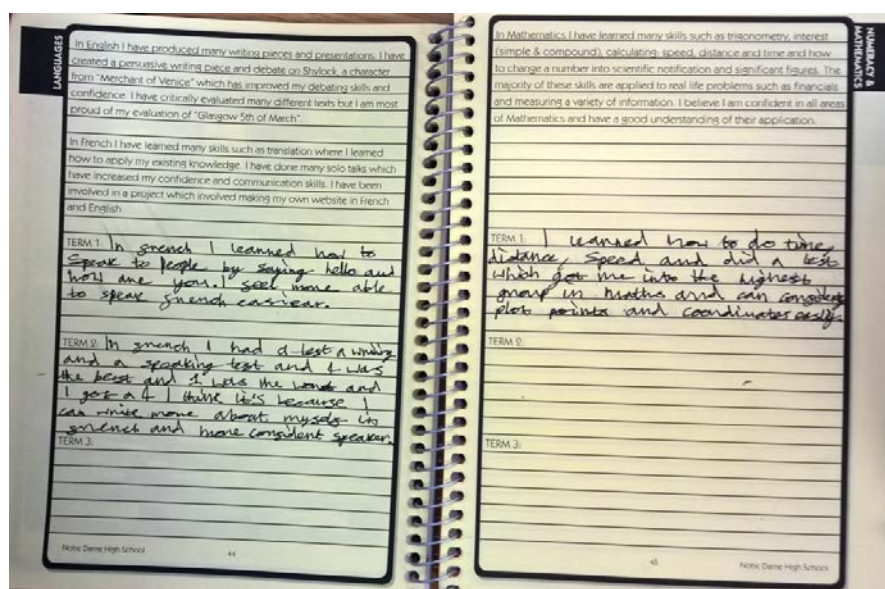 LANGUAGES
In English I have produced many writing pieces and presentations. I have
created a persuasive writing piece and debate on Shylock, a character
from "Merchant of Venice" which has improved my debating skills and
confidence. I have critically evaluated many different texts but I am most
proud of my evaluation of "Glasgow 5th of March".
In French I have learned many skills such as translation where I learned
how to apply my existing knowledge. I have done many solo talks which
have increased my confidence and communication skills. I have been
involved in a project which involved making my own website in French
and English
TERM 1: In french I learned how to
speak to people by saying hello and
how are you. I feel more able
to speak french easiear.
TERM 2: In french I had a test a writing
and a speaking test and 4 was
the best and 1 was the worst and
I got a 4 I think it's because I
can write more about myself in
french and more confident speaker.
TERM 3:
Notre Dame High School
44
NUMERACY &
MATHEMATICS
In Mathematics I have learned many skills such as trigonometry, interest
(simple & compound), calculating: speed, distance and time and how
to change a number into scientific notification and significant figures. The
majority of these skills are applied to real life problems such as financials
and measuring a variety of information. I believe I am confident in all areas
of Mathematics and have a good understanding of their application.
TERM 1: I learned how to do time,
distance, speed and did a test
which got me into the highest
group in maths and can
plot points and coordinates easily.
TERM 2:
TERM 3:
Notre Dame High School